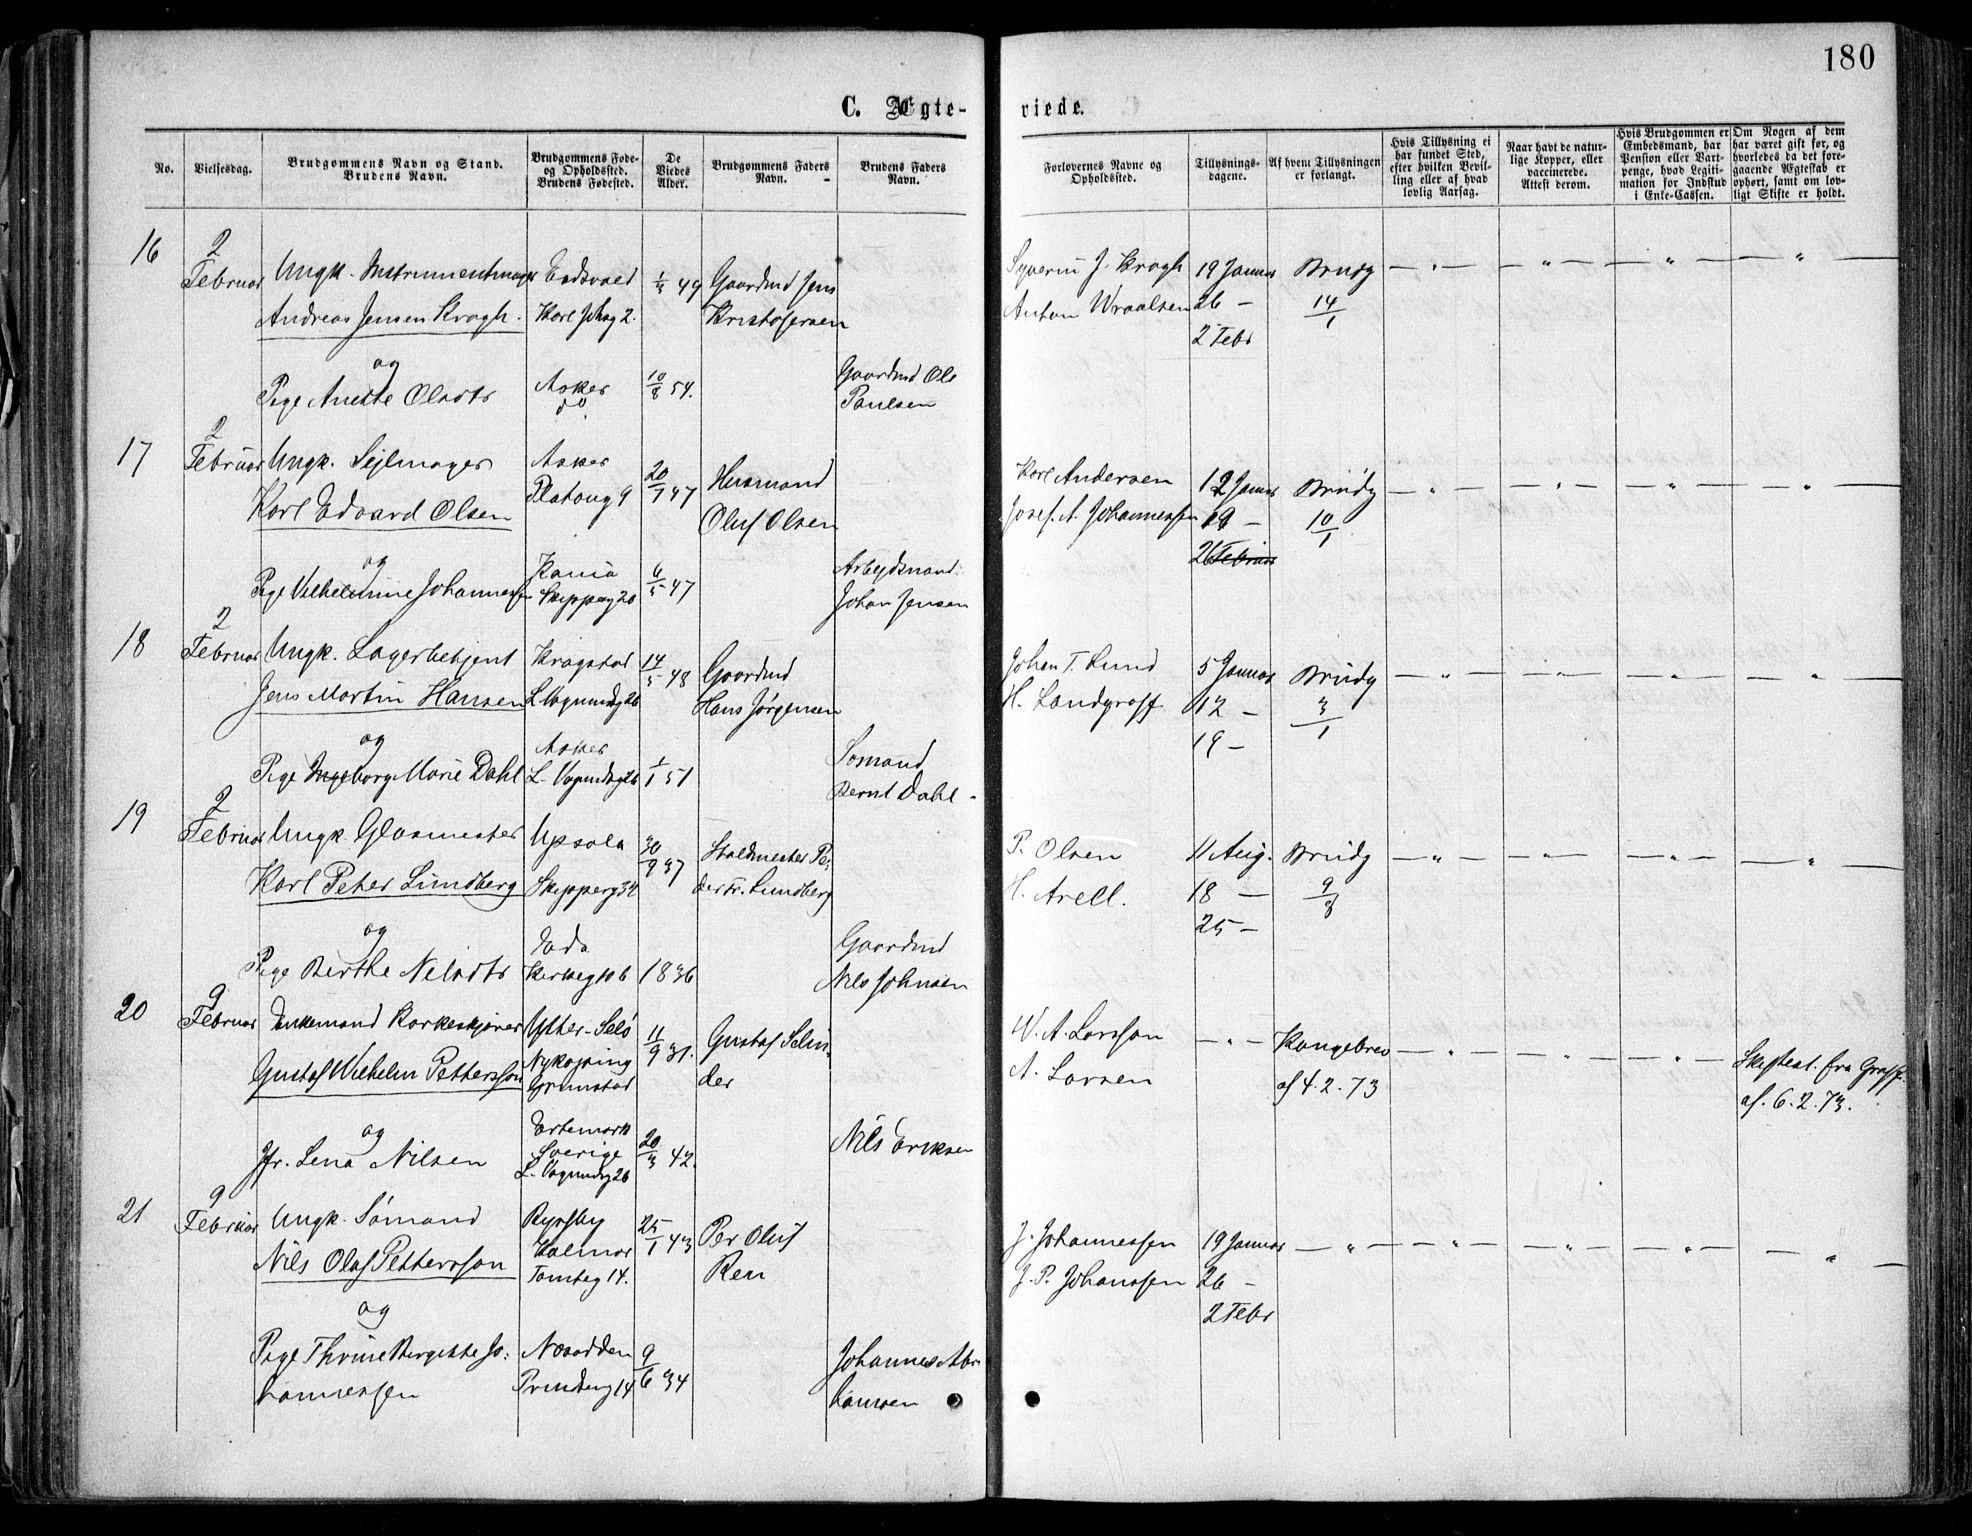 180
C. Ægte-
viede.
No.
Vielsesdag.
Brudgommens Navn og Stand.
Brudens Navn.
Brudgommens Føde-
og Opholdssted.
Brudens Fødested.
De
Viedes
Alder.
Brudgommens Faders
Navn.
Brudens Faders
Navn.
Forlovernes Navne og
Opholdssted.
Tillysnings-
dagene.
Af hvem Tillysningen
er forlangt.
Hvis Tillysning ei
har fundet Sted,
efter hvilken Bevil-
ling eller af hvad
lovlig Aarsag.
Naar havt de natur-
lige Kopper, eller
vaccinerede.
Attest derom.
Hvis Brudgommen er
Embedsmand, har
Pension eller Vart-
penge, hvad Legiti-
mation for Indskud
i Enke-Cassen.
Om Nogen af dem
har været gift før, og
hvorledes da det fore-
gaaende Ægteskab er
ophørt, samt om lov-
ligt Skifte er holdt.
16
2
Februar
Ungk. Instrumentmager
Andreas Jensen Kragh.
og
Pige Anette Olsdtr
Eidsvold
Karl Johsg 2.
Asker
do.
49
10/8 54.
Gaardmd Jens
Kristofersen
Gaardmd Ole
Paulsen
Syverin J. Kragh
Anton Wraalsen
19 Januar
26 —
2 Febr
Brudg
14/1
17
2
Februar
Ungk. Sejlmager
Karl Edvard Olsen
og
Pige Vilhelmine Johannessen
Asker
Platoug 9
Kania
Skipperg 20
20/1 47
6/5 47
Husmand
Oluf Olsen
Arbejdsmand
Johan Jensen
Karl Andersen
Josef. A. Johannessen
12 Januar
19 —
26 Februar
Brudg
10/1
18
2
Februar
Ungk. Lagerbetjent
Jens Martin Hansen
og
Pige Ingeborg Marie Dahl
Kragstad
L. Vognmdsg 26
Asker
L. Vognmdsg 26
14/5 48
1/1 51
Gaardmd
Hans Jørgensen
Sømand
Bernt Dahl
Johan T. Lund
H. Landgraff
5 Januar
12 —
19 —
Brudg
3/1
19
2
Februar
Ungk. Glasmester
Karl Peter Lundberg
og
Pige Berthe Nelsdtr
Upsala
Skipperg 34
Eda
30/9 37
1836
Staldmester Pe-
der Fr. Lundberg
Gaardmd
Nils Johnsen
P. Olsen
H. Arell.
11 Aug.
18 —
25 —
Brudg
9/8
20
9
Februar
Enkemand Korkeskjærer
Gustaf Wilhelm Pettersson
og
Jfr. Lena Nilsen
Ytter-Selö
Nykøping
Grønstad
Ertemark
Sverige
L. Vognmdsg 26
11/9 31.
20/3 42.
Gustaf Selin-
der
Nils Eriksen
W. A. Larsson
A. Larsen
Kongebrev
af 4.2.73
Skifteat. fra Graff
af. 6.2.73.
21
9
Februar
Ungk. Sømand
Nils Olaf Pettersson
og
Pige Thrine Bergitte Jo-
hannessen
Ryssby
Kalmar
Tomteg 14.
Næsodden
Prindseng 14
25/1 43
9/6 34
Per Oluf
Ren
Johannes Abra
hamsen
J. Johannessen
J. P. Johanssen
19 Januar
26 —
2 Febr